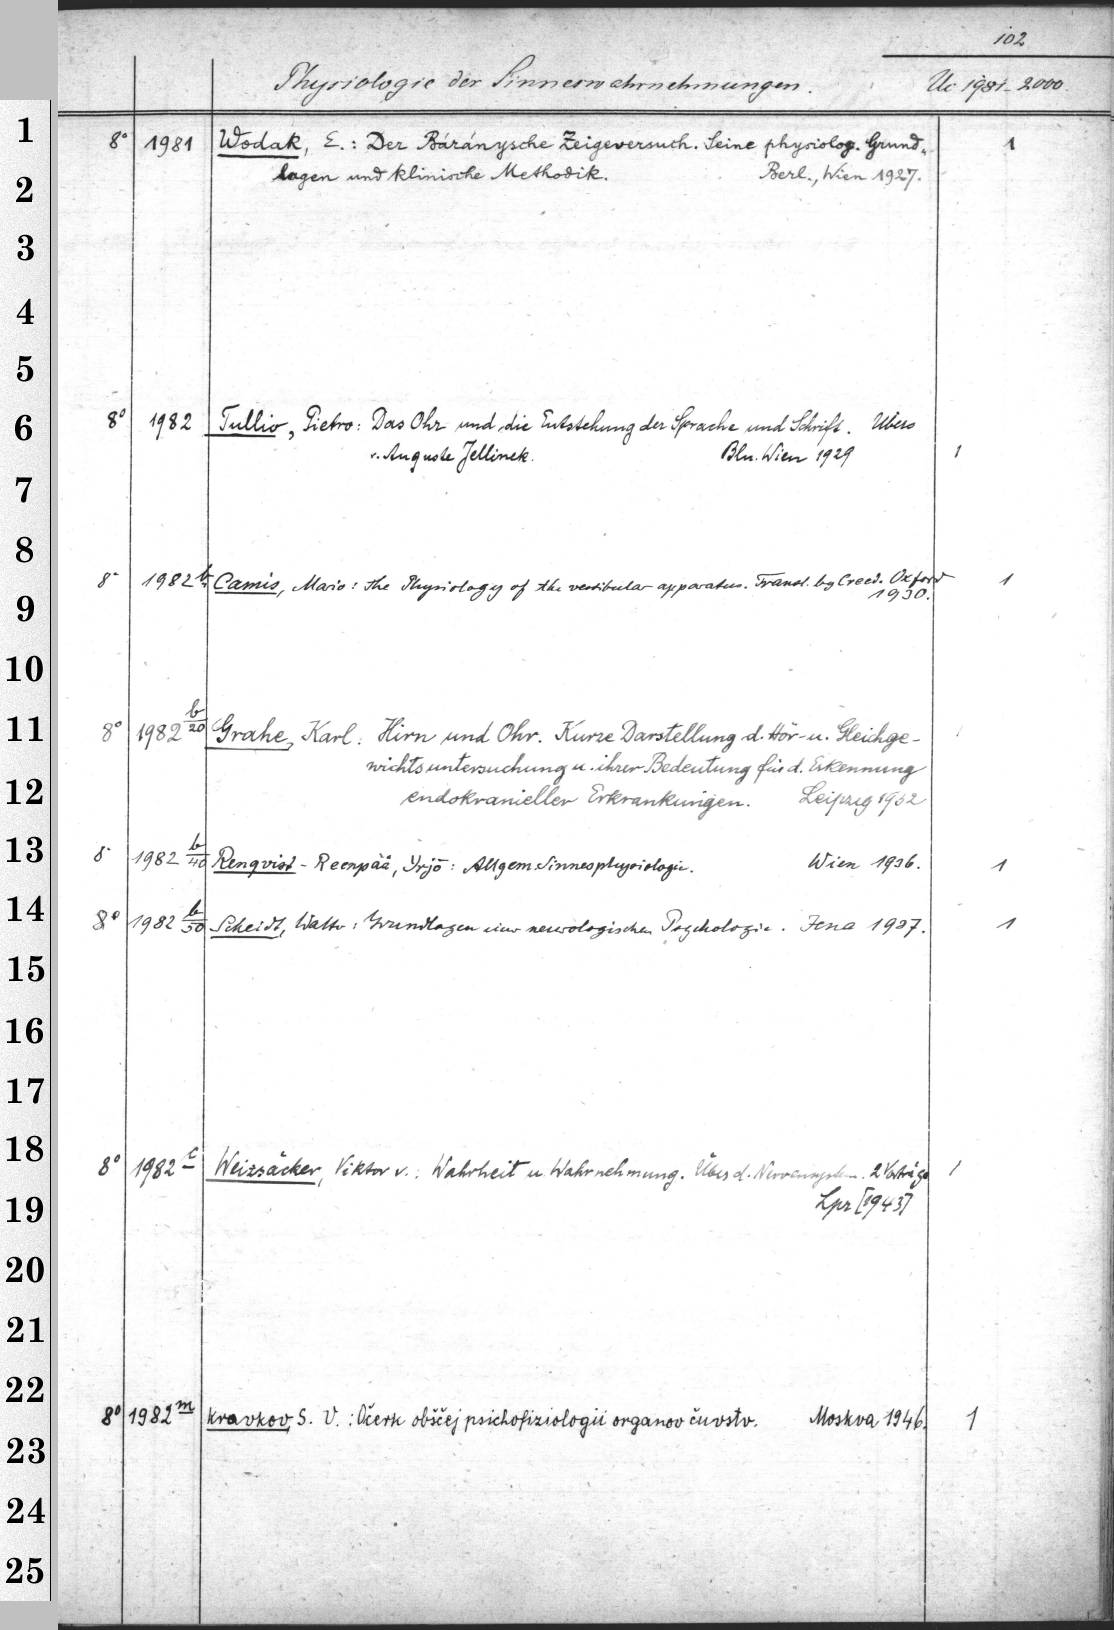 102
Physiologie der Sinneswahrnehmungen.
Uc 1981-2000.
1
8° 1981 Wodak, E.: Der Báránysche Zeigeversuch. Seine physiolog. Grund- 1
2
lagen und klinische Methodik. Berl., Wien 1927.
3
4
5
6
8° 1982 Tullio, Pietro: Das Ohr und die Entstehung der Sprache und Schrift. Übers
v. Auguste Jellinek. Bln. Wien 1929 1
7
8
8° 1982 b Camis, Mario: The Physiology of the vestibular apparatus. Transl. by Creed. Oxford 1
9
1930.
10
11
8° 1982 b/20 Grahe, Karl: Hirn und Ohr. Kurze Darstellung d. Hör- u. Gleichge- 1
wichtsuntersuchung u. ihrer Bedeutung für d. Erkennung
12
endokranieller Erkrankungen. Leipzig 1932
13
8° 1982 b/40 Renqvist - Reenpää, Yrjö: Allgem. Sinnesphysiologie. Wien 1936. 1
14
8° 1982 b/50 Scheidt, Walter: Grundlagen einer neurologischen Psychologie. Jena 1937. 1
15
16
17
18
8° 1982 c Weizsäcker, Viktor v.: Wahrheit u Wahrnehmung. Über d. Nervensystem. 2 Vorträge 1
19
Lpz [1943]
20
21
22
8° 1982 m Kravkov, S. V.: Očerk obščej psichofiziologii organov čuvstv. Moskva 1946. 1
23
24
25